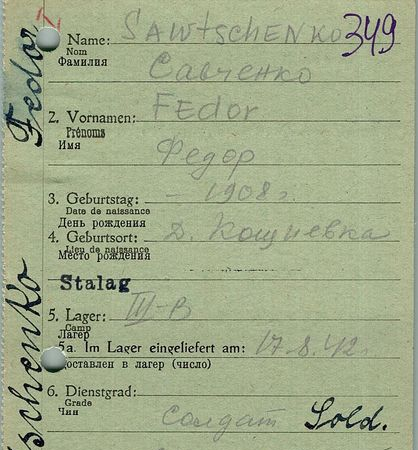 Name: SAWtSCHENKO 349
Nom
Фамилия
Савченко
2. Vornamen: FEdor
Prénoms
Имя
Федор
3. Geburtstag: – 1908 г.
Date de naissance
День рождения
4. Geburtsort: д. Кощиевка
Lieu de naissance
Место рождения
Stalag
5. Lager: III-B
Camp
Лагерь
5a. Im Lager eingeliefert am: 17.8.42
Доставлен в лагер (число)
6. Dienstgrad:
Grade
Чин
солдат Sold.
Fedor
schenko